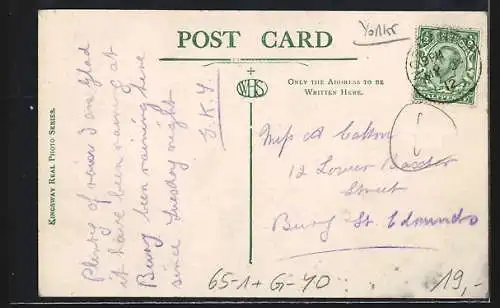 Yorks
POST CARD
WHS
ONLY THE ADDRESS TO BE
WRITTEN HERE.
KINGSWAY REAL PHOTO SERIES.
Plenty of rain & am glad
it have been raining at
Bury been raining here
since Tuesday night
E.K.Y.
Miss A Catton
12 Lower Baxter
Street
Bury St. Edmunds
65-1 + G-40
19,-